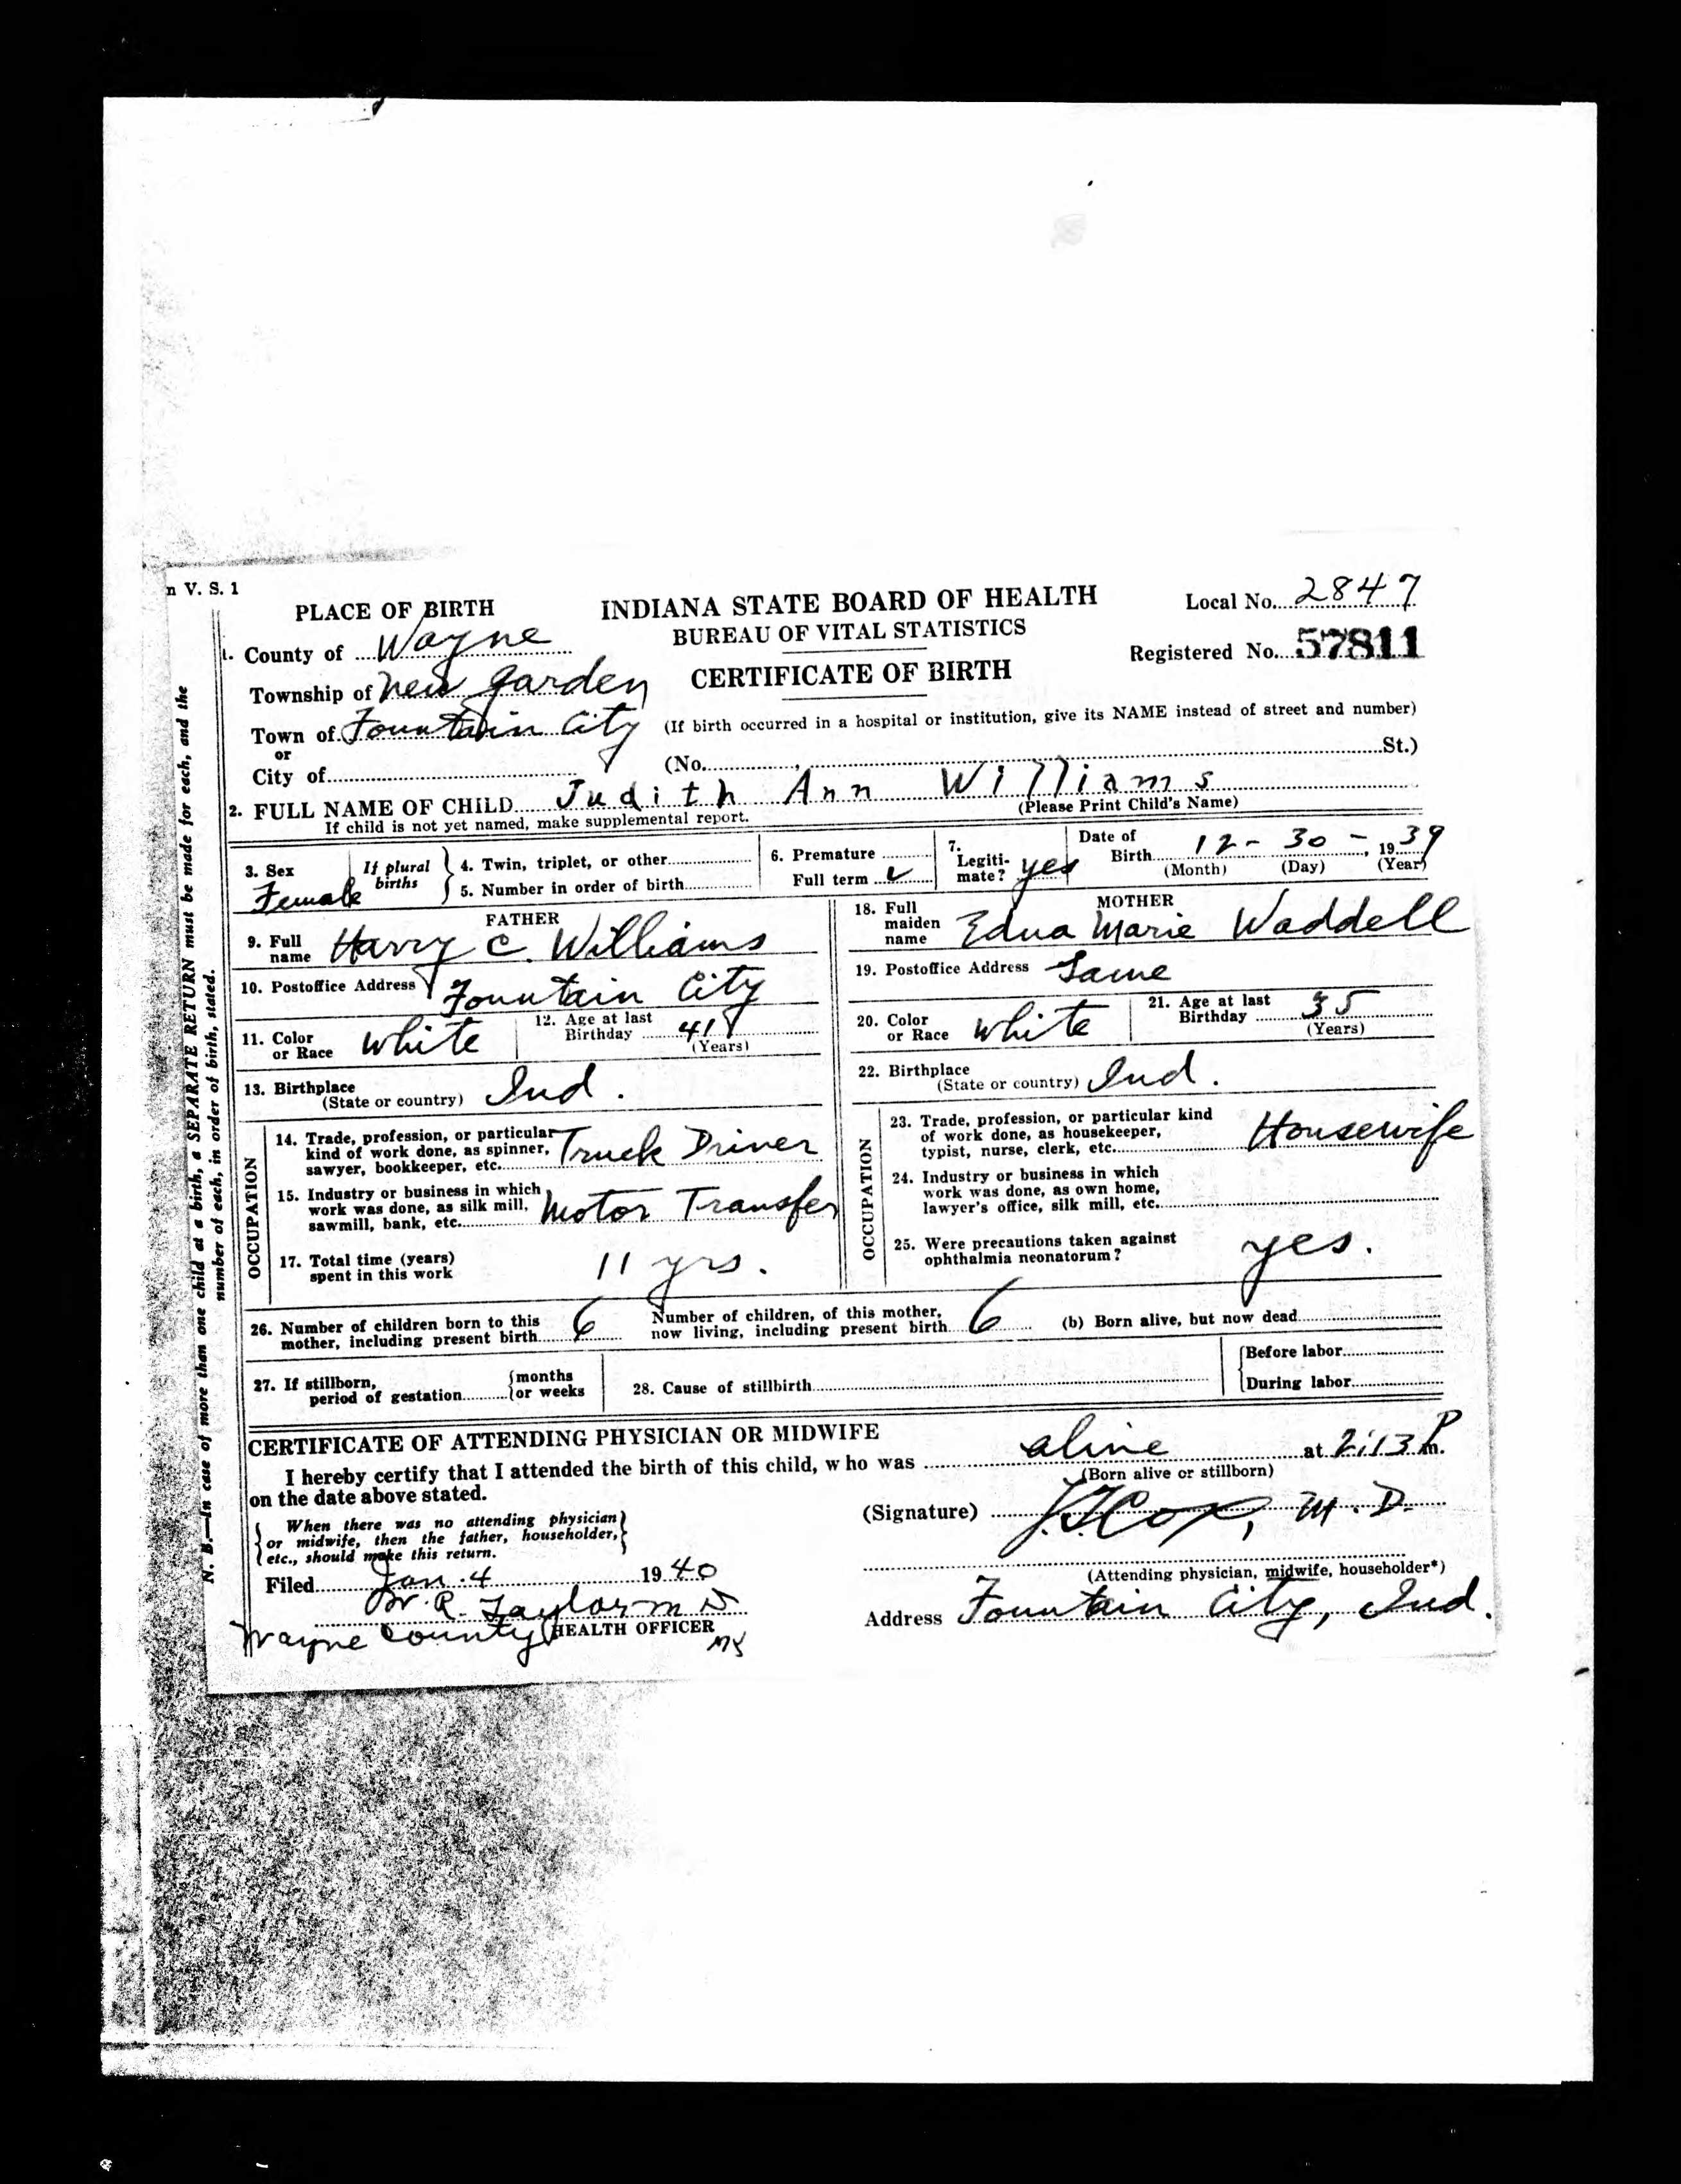 n V. S. 1
PLACE OF BIRTH
INDIANA STATE BOARD OF HEALTH
Local No. 2847
BUREAU OF VITAL STATISTICS
1. County of Wayne
Registered No. 57811
CERTIFICATE OF BIRTH
Township of New Garden
Town of Fountain City (If birth occurred in a hospital or institution, give its NAME instead of street and number)
or
City of (No. , St.)
2. FULL NAME OF CHILD Judith Ann Williams
(Please Print Child's Name)
If child is not yet named, make supplemental report.
3. Sex Female
If plural births
4. Twin, triplet, or other
5. Number in order of birth
6. Premature
Full term ✓
7. Legiti-
mate? yes
Date of
Birth 12 - 30 -, 1939
(Month) (Day) (Year)
FATHER
9. Full
name Harry C. Williams
10. Postoffice Address Fountain City
11. Color
or Race White
12. Age at last
Birthday 41
(Years)
13. Birthplace
(State or country) Ind.
OCCUPATION
14. Trade, profession, or particular
kind of work done, as spinner,
sawyer, bookkeeper, etc. Truck Driver
15. Industry or business in which
work was done, as silk mill,
sawmill, bank, etc. Motor Transfer
17. Total time (years)
spent in this work 11 yrs.
MOTHER
18. Full
maiden
name Edna Marie Waddell
19. Postoffice Address Same
20. Color
or Race White
21. Age at last
Birthday 35
(Years)
22. Birthplace
(State or country) Ind.
OCCUPATION
23. Trade, profession, or particular kind
of work done, as housekeeper,
typist, nurse, clerk, etc. Housewife
24. Industry or business in which
work was done, as own home,
lawyer's office, silk mill, etc.
25. Were precautions taken against
ophthalmia neonatorum? yes.
26. Number of children born to this
mother, including present birth 6
Number of children, of this mother,
now living, including present birth 6
(b) Born alive, but now dead
27. If stillborn,
period of gestation {months
{or weeks
28. Cause of stillbirth
{Before labor
{During labor
CERTIFICATE OF ATTENDING PHYSICIAN OR MIDWIFE
I hereby certify that I attended the birth of this child, who was alive at 2:13 P m.
(Born alive or stillborn)
on the date above stated.
{When there was no attending physician
or midwife, then the father, householder,
etc., should make this return.}
(Signature) Cox, M.D.
(Attending physician, midwife, householder*)
Filed Jan. 4 1940
R. Taylor M D
Wayne County HEALTH OFFICER
Address Fountain City, Ind.
N. B.—In case of more than one child at a birth, a SEPARATE RETURN must be made for each, and the
number of each, in order of birth, stated.